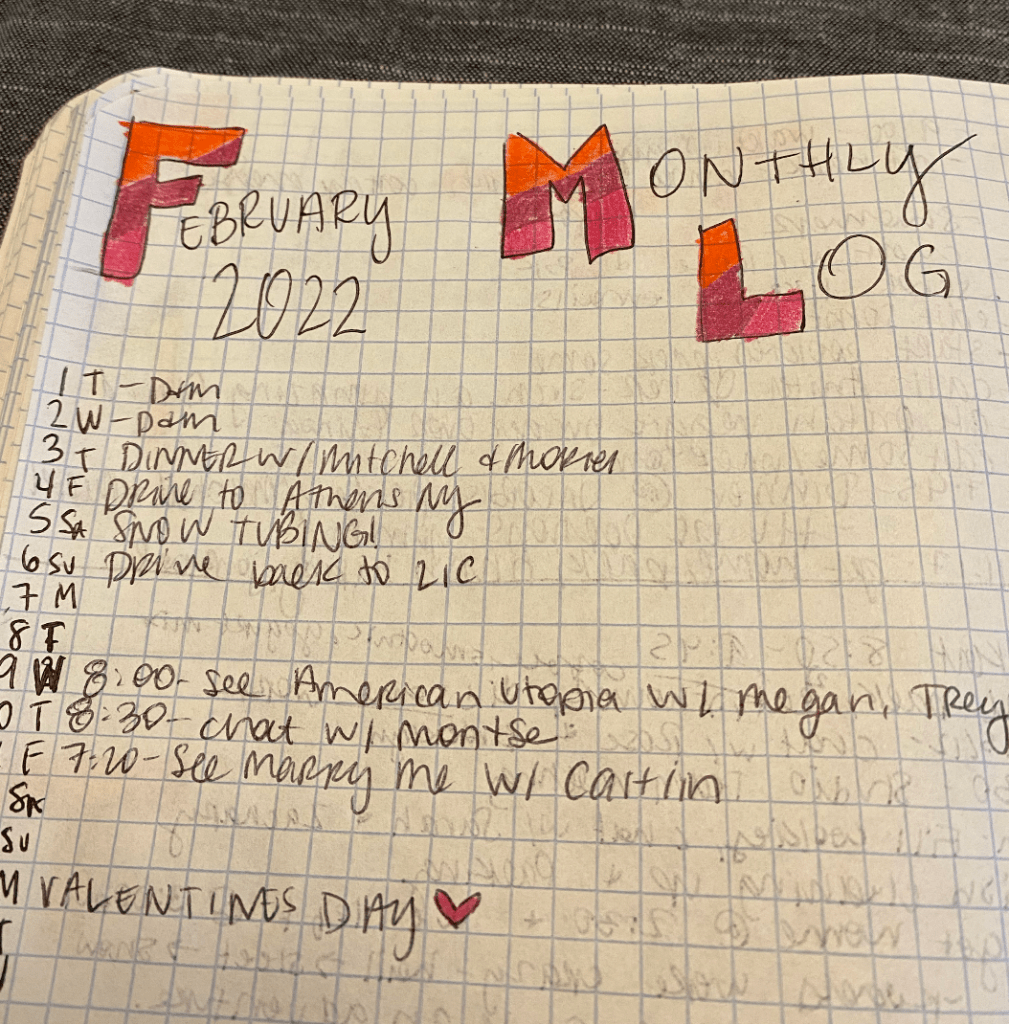 FEBRUARY
2022
MONTHLY
LOG
1 T - Dam
2 W - Dam
3 T DINNER W/ Mitchell &
4 F Drive to Athens NY
5 SA SNOW TUBING!
6 SU Drive back to LIC
7 M
8 T
9 W 8:00 - see American Utopia w/ Megan, Trey
0 T 8:30 - chat w/ Montse
F 7:20 - See Marry Me w/ Caitlin
SA
SU
M VALENTINES DAY
T